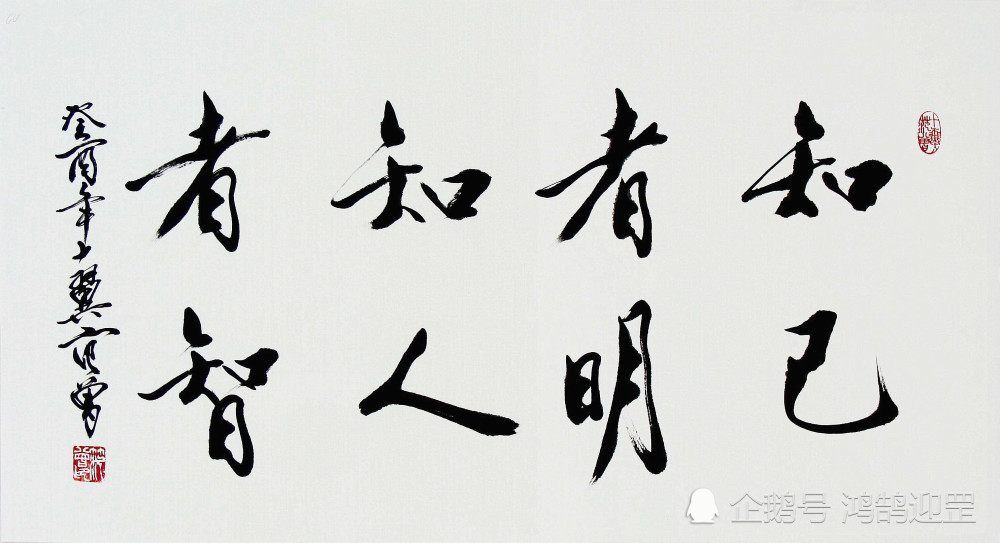 知己
者明
知人
者智
癸酉年十翼范曾
企鹅号 鸿鹄迎罡